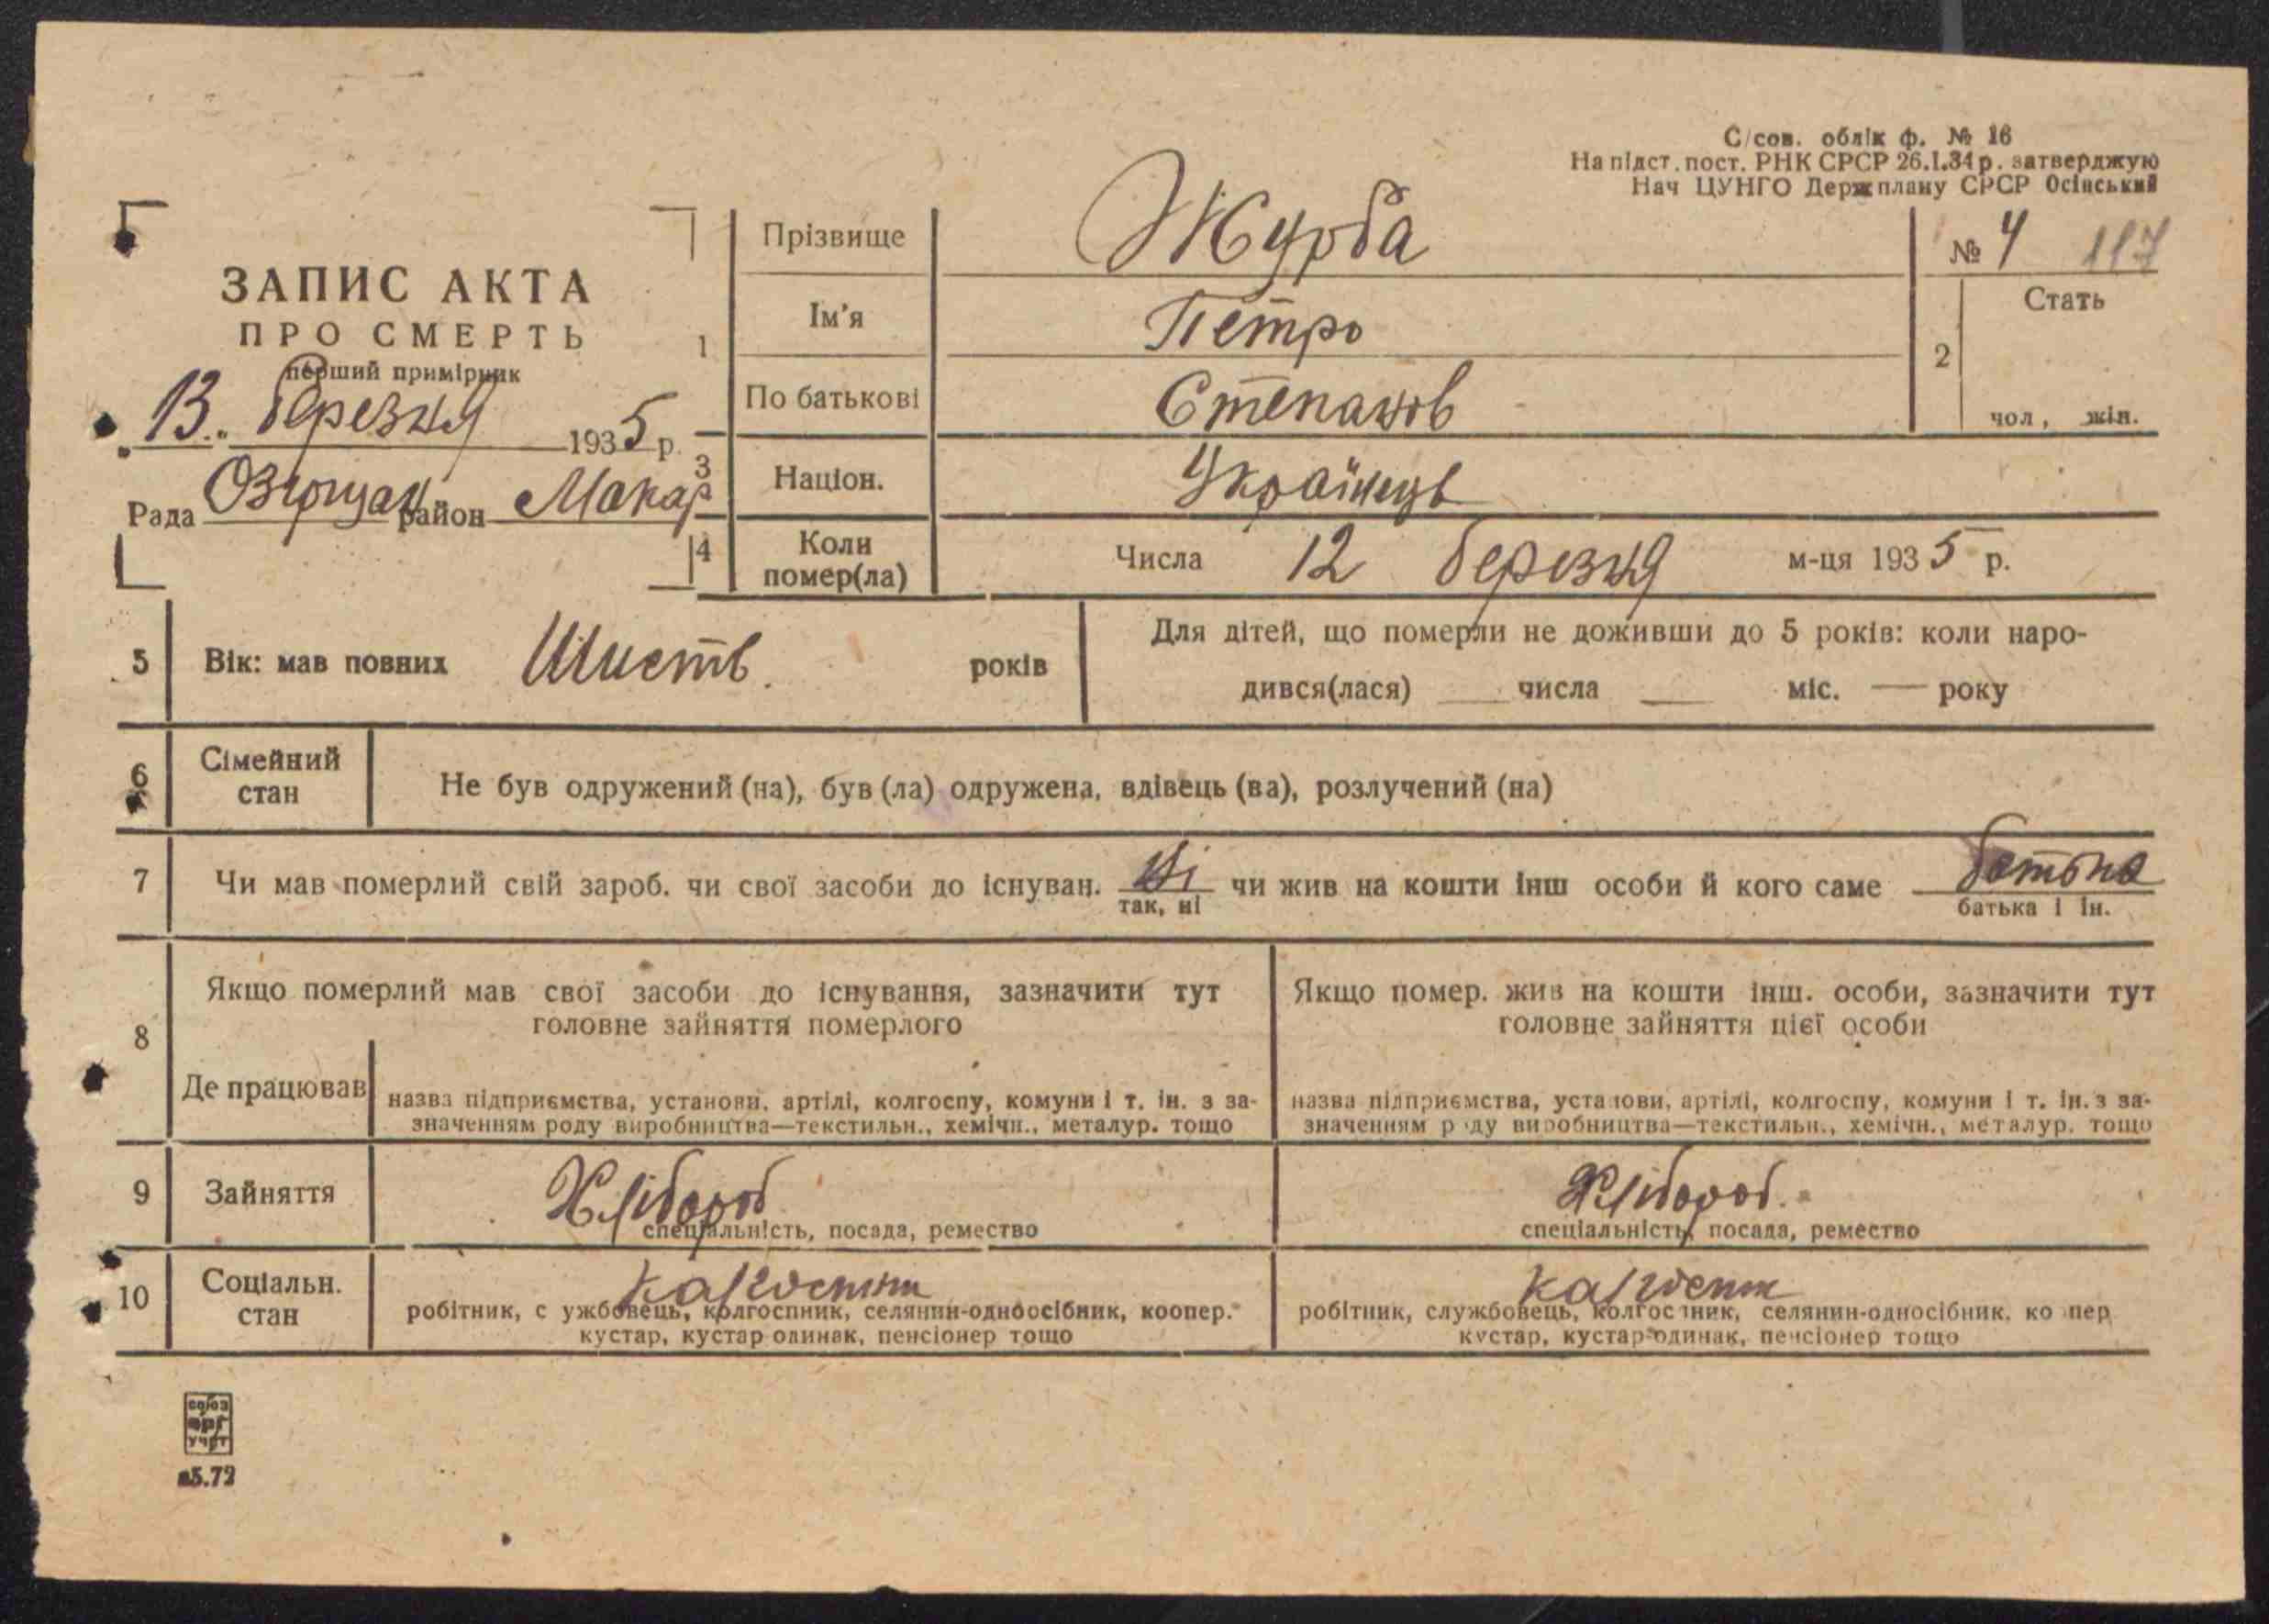 С/сов. облік ф. № 16
На підст. пост. РНК СРСР 26.І.34 р. затверджую
Нач ЦУНГО Держплану СРСР Осінський
ЗАПИС АКТА
ПРО СМЕРТЬ
перший примірник
13. березня 1935 р.
Рада район Макар
1
Прізвище Журба
Ім'я Петро
По батькові Степанов
№ 4 117
2 Стать
чол, жін.
3 Націон. Українець
4 Коли помер(ла) Числа 12 березня м-ця 1935 р.
5 Вік: мав повних Шисть років
Для дітей, що померли не доживши до 5 років: коли наро-
дився(лася) — числа — міс. — року
6 Сімейний стан Не був одружений (на), був (ла) одружена, вдівець (ва), розлучений (на)
7 Чи мав померлий свій зароб. чи свої засоби до існуван. Ні чи жив на кошти інш особи й кого саме батька
так, ні батька і ін.
8 Якщо померлий мав свої засоби до існування, зазначити тут
головне зайняття померлого
Якщо помер. жив на кошти інш. особи, зазначити тут
головне зайняття цієї особи
Де працював
назва підприємства, установи, артілі, колгоспу, комуни і т. ін. з за-
значенням роду виробництва—текстильн., хемічн., металур. тощо
назва підприємства, установи, артілі, колгоспу, комуни і т. ін. з за-
значенням роду виробництва—текстильн., хемічн., металур. тощо
9 Зайняття Хлібороб Хлібороб.
спеціальність, посада, ремество спеціальність, посада, ремество
10 Соціальн. стан
робітник, с ужбовець, колгоспник, селянин-одноосібник, коопер.
кустар, кустар одинак, пенсіонер тощо
робітник, службовець, колгоспник, селянин-односібник, ко пер
кустар, кустар-одинак, пенсіонер тощо
союз
орг
учет
в5.72